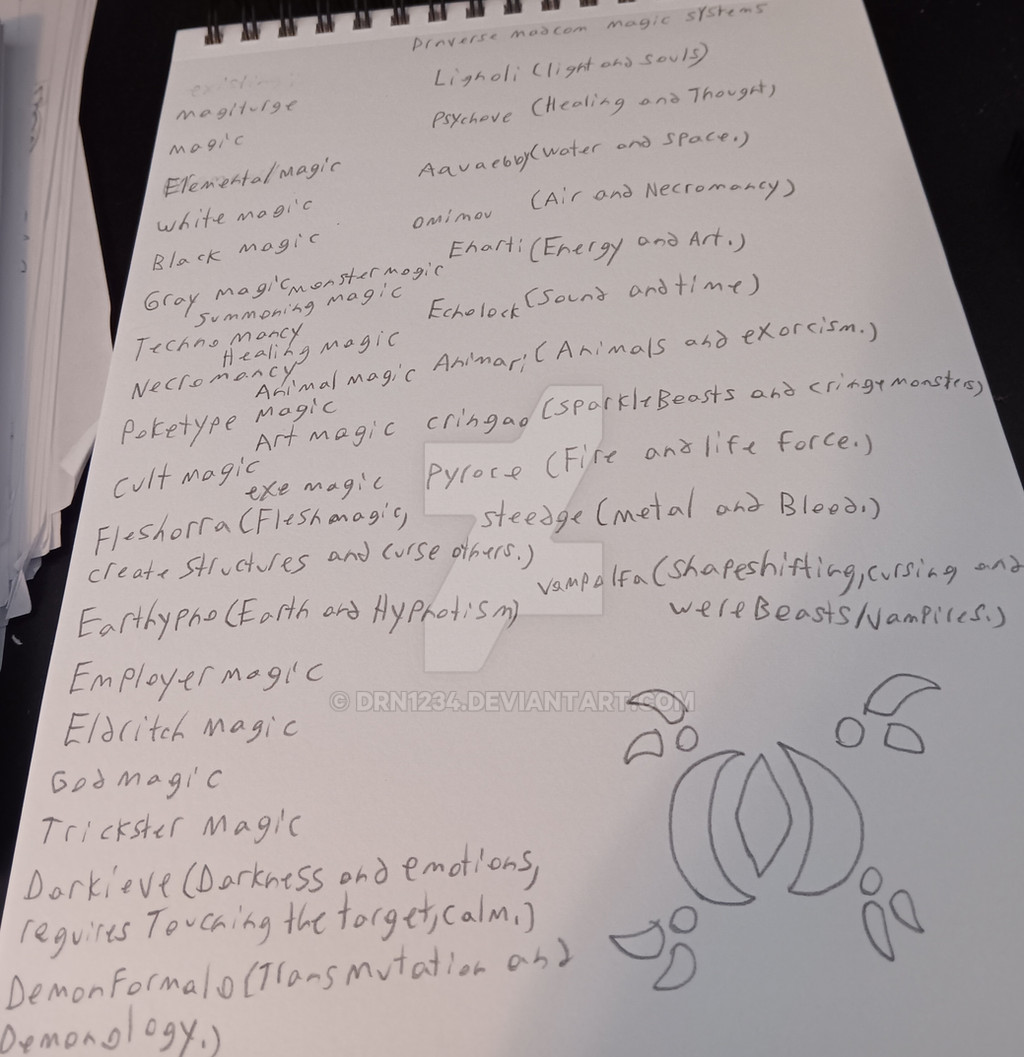 Drnverse modcom magic systems
existing:
magiturge
magic
Elemental magic
white magic
Black magic
Gray magic monster magic
summoning magic
Techno mancy
Healing magic
Necromancy
Animal magic
Poketype magic
Art magic
cult magic
exe magic
Fleshorra (Flesh magic,
create structures and curse others.)
Earthypno (Earth and Hyphotism)
Employer magic
Eldritch magic
God magic
Trickster magic
Darkieve (Darkness and emotions,
requires Touching the target, calm.)
Demonformalo (Transmutation and
Demonology.)
Ligholi (light and souls)
Psychove (Healing and Thought)
Aavaebby (water and space.)
omimov (Air and Necromancy)
Eharti (Energy and Art.)
Echolock (Sound and time)
Animari (Animals and exorcism.)
cringao (sparkleBeasts and cringe monsters)
Pyroce (Fire and life force.)
steedge (metal and Blood.)
vampalfa (shapeshifting, cursing and
wereBeasts/Vampires.)
© DRN1234.DEVIANTART.COM